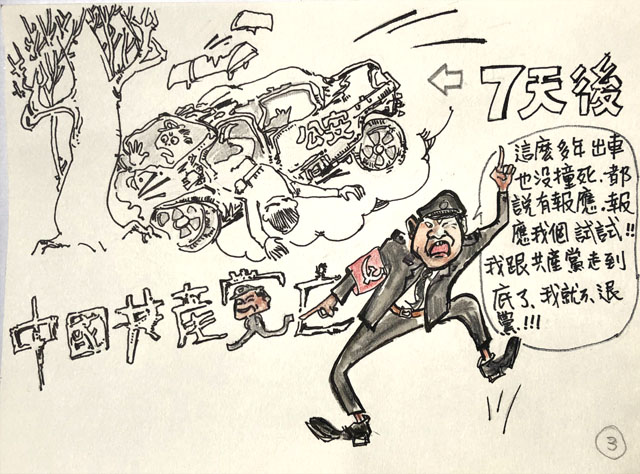 7天後
這麼多年出車
也没撞死.都
說有報應.報
應我個試試!!
我跟共產黨走到
底了.我就不退
黨.!!!
公安
中國共產党亡
3